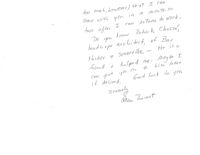 too much, however) that I can
then with you in a minute or
two after I can return to work.
Do you know Patrick Chassé,
landscape architect, of Bar
Harbor & Somerville — He is a
friend & helped me. Maybe I
can put you on to him later
if desired. Good luck to you
Sincerely